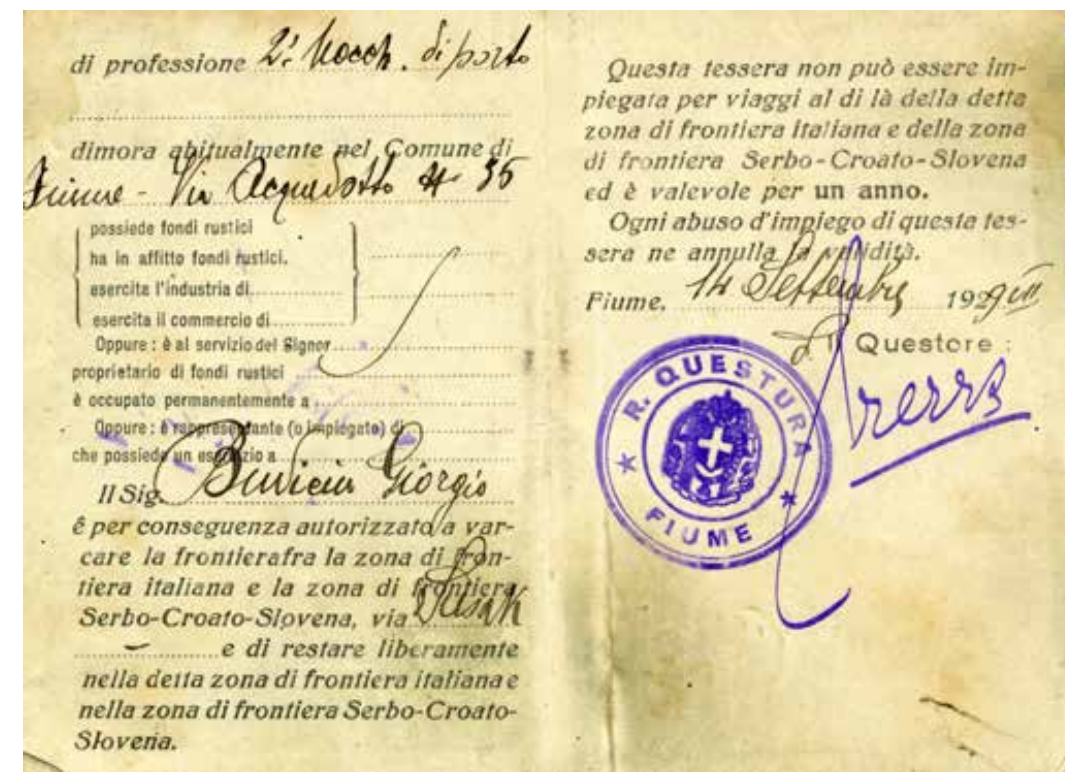 di professione 2° Macch. di porto
dimora abitualmente nel Comune di
Fiume - Via Acquedotto # 35
possiede fondi rustici
ha in affitto fondi rustici.
esercita l'industria di
esercita il commercio di
Oppure : è al servizio del Signor
proprietario di fondi rustici
è occupato permanentemente a
Oppure : è rappresentante (o impiegato) di
che possiede un esercizio a
Il Sig. Giorgio
ê per conseguenza autorizzato a var-
care la frontiera fra la zona di fron-
tiera italiana e la zona di frontiera
Serbo-Croato-Slovena, via Susak
e di restare liberamente
nella detta zona di frontiera italiana e
nella zona di frontiera Serbo-Croato-
Slovena.
Questa tessera non può essere im-
piegata per viaggi al di là della detta
zona di frontiera italiana e della zona
di frontiera Serbo-Croato-Slovena
ed è valevole per un anno.
Ogni abuso d'impiego di questa tes-
sera ne annulla la validità.
Fiume, 14 Settembre 1929 VII
Il Questore :
R. QUESTURA
FIUME